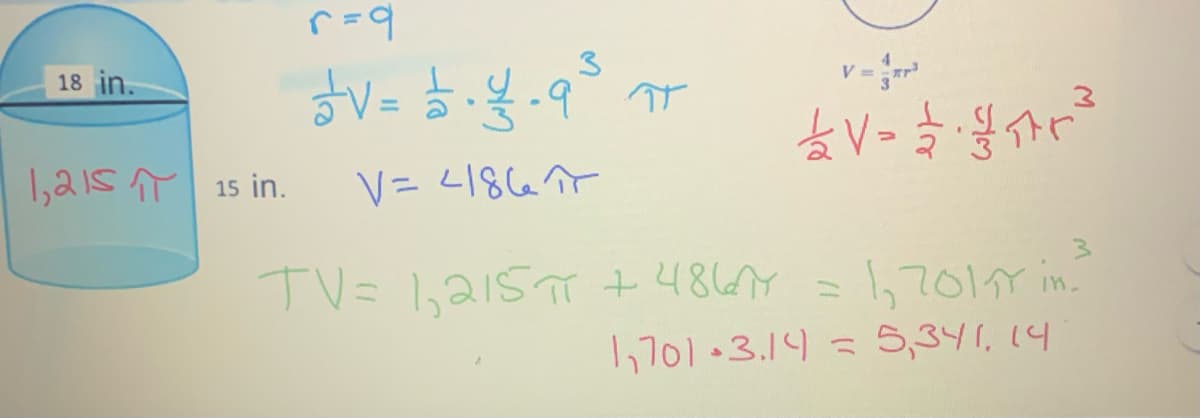 r=9
18 in.
½V = ½ · 4/3 · 9³ π
V = 4/3 πr³
½V = ½ · 4/3 πr³
1,215 π
15 in.
V = 486π
TV = 1,215π + 486π = 1,701π in.³
1,701 · 3.14 = 5,341.14